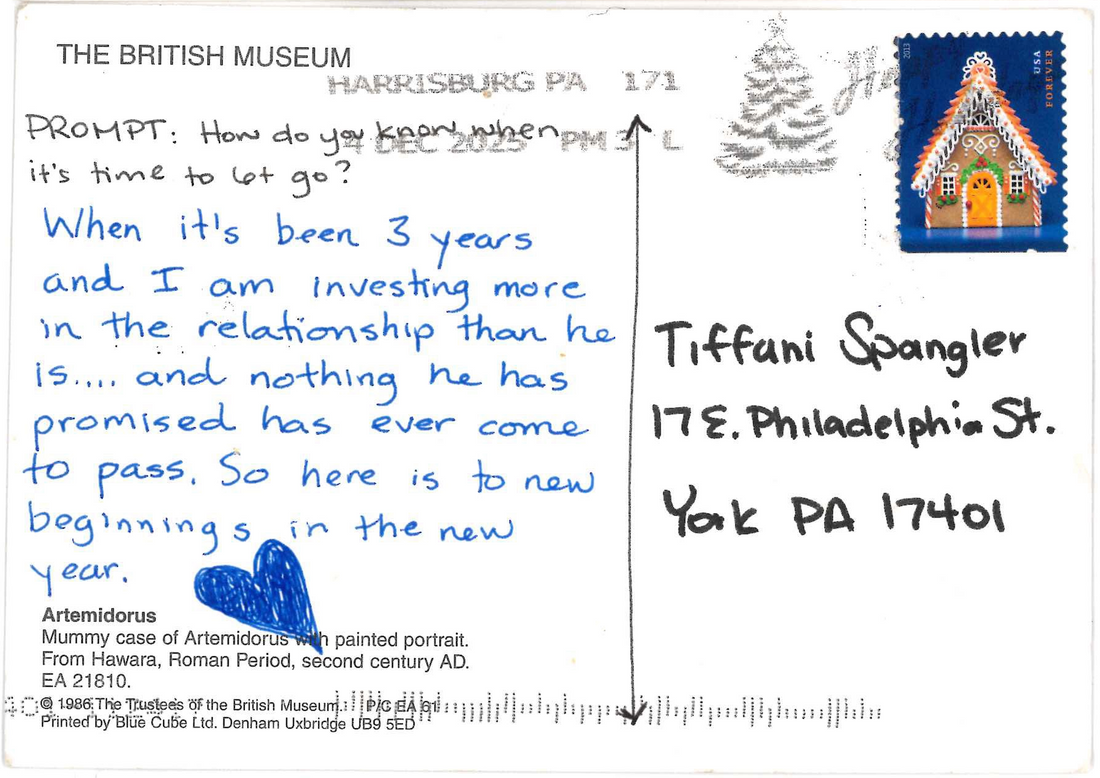 THE BRITISH MUSEUM
HARRISBURG PA 171
4 DEC 2025 PM 3 L
2013
USA
FOREVER
PROMPT: How do you know when
it's time to let go?
When it's been 3 years
and I am investing more
in the relationship than he
is.... and nothing he has
promised has ever come
to pass. So here is to new
beginnings in the new
year.
Tiffani Spangler
17 E. Philadelphia St.
York PA 17401
Artemidorus
Mummy case of Artemidorus with painted portrait.
From Hawara, Roman Period, second century AD.
EA 21810.
© 1986 The Trustees of the British Museum. P/C EA 61
Printed by Blue Cube Ltd. Denham Uxbridge UB9 5ED